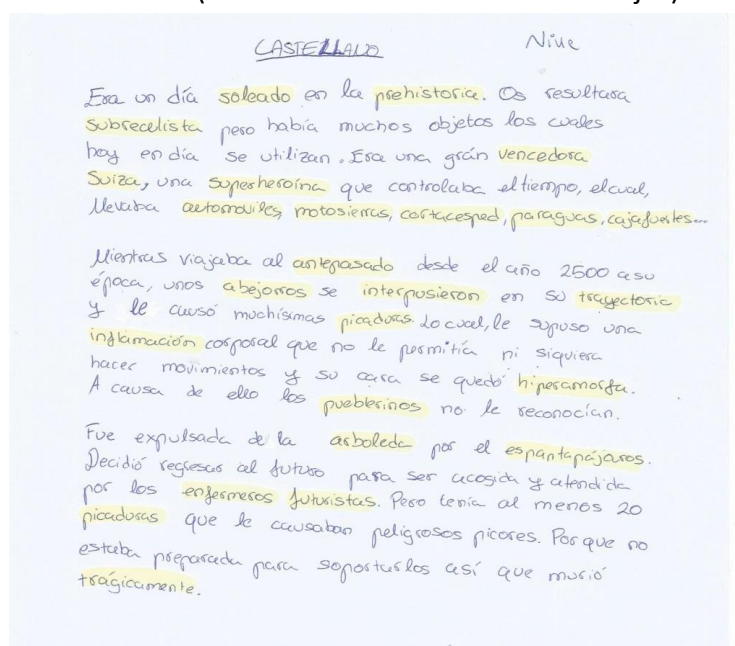 CASTELLANO
Niue
Era un día soleado en la prehistoria. Os resultara
subrrealista pero había muchos objetos los cuales
hoy en día se utilizan. Era una grán vencedora
Suiza, una superheroína que controlaba el tiempo, el cual,
llevaba automoviles, motosierras, cortacesped, paraguas, cajafuertes...
Mientras viajaba al antepasado desde el año 2500 a su
época, unos abejorros se interpusieron en su trayectoria
y le causó muchísimas picaduras. Lo cual, le supuso una
inflamación corporal que no le permitía ni siquiera
hacer movimientos y su cara se quedó hiperamorfa.
A causa de ello los pueblerinos no le reconocían.
Fue expulsada de la arboleda por el espantapájaros.
Decidió regresar al futuro para ser acogida y atendida
por los enfermeros futuristas. Pero tenía al menos 20
picaduras que le causaban peligrosos picores. Por que no
estaba preparada para soportarlos así que murió
trágicamente.